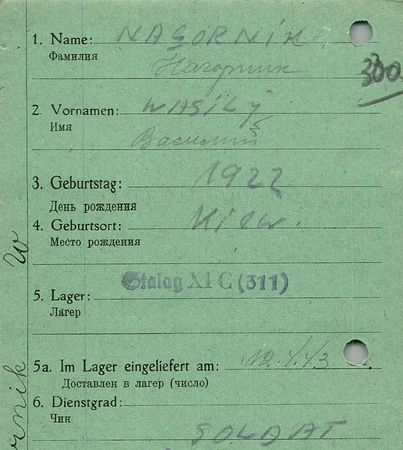 1. Name: NAGORNIK
Фамилия Нагорник
300.
2. Vornamen: WASILY
Имя Василий
3. Geburtstag: 1922
День рождения
4. Geburtsort: Kiew.
Место рождения
5. Lager: Stalag XI C (311)
Лагер
5a. Im Lager eingeliefert am:
Доставлен в лагер (число)
6. Dienstgrad:
Чин SOLDAT
rnik W